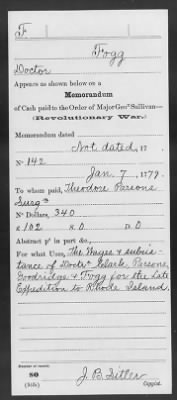 F
Fogg
Doctor
Appears as shown below on a
Memorandum
of Cash paid to the Order of Major Genl Sullivan—
(Revolutionary War.)
Memorandum dated
Not dated, 17 .
No 142
Jan. 7, 1779.
To whom paid, Theodore Parsons
Surgn
No Dollars, 340
£ 102 S. 0 D. 0
Abstract pr in part do.,
For what Uses, The Wages & subsis-
tance of Doctrs Clark, Parsons,
Goodridge & Fogg for the Late
Expedition to Rhode Island.
Number of record:
80
J. B. Fitler
Copyist.